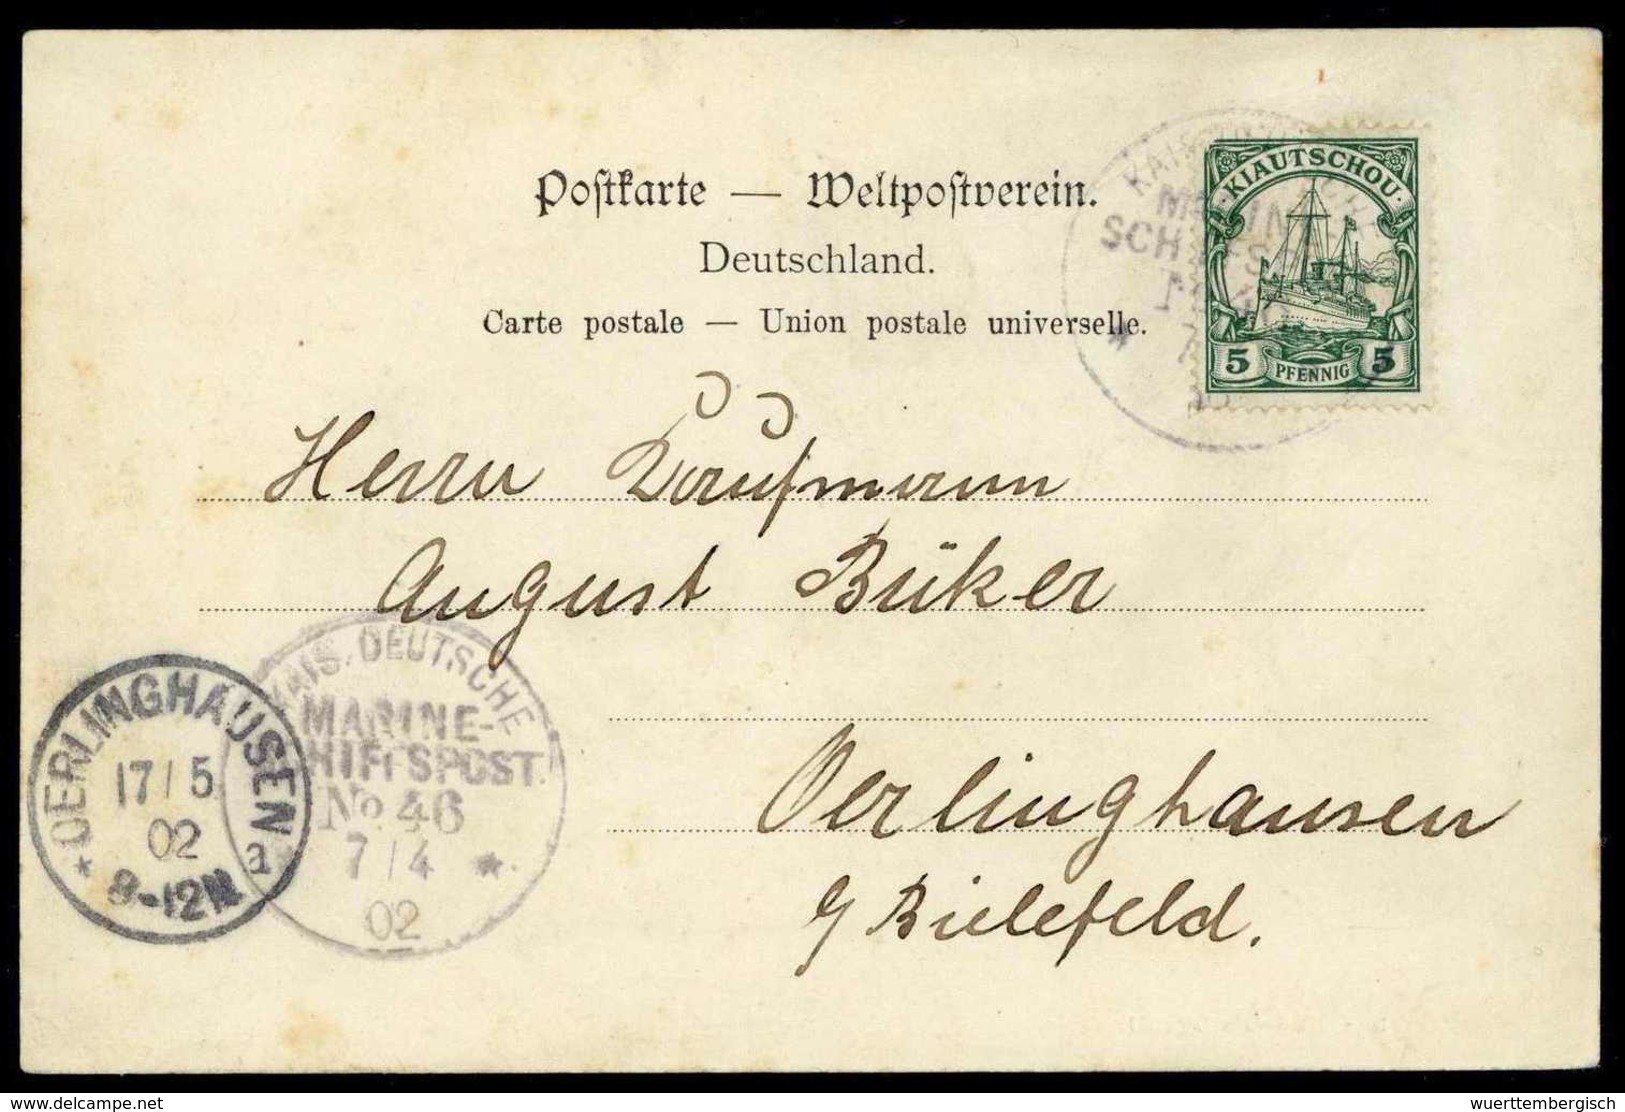 Postkarte — Weltpostverein.
Deutschland.
Carte postale — Union postale universelle.
KIAUTSCHOU
5 PFENNIG 5
Herrn Kaufmann
August Büker
Oerlinghausen
b/ Bielefeld.
KAIS. DEUTSCHE
MARINE-
SCHIFFSPOST
No. 46
7/4
02
OERLINGHAUSEN
17/5
02
9-12N
a
delcampe.net
wuerttembergisch